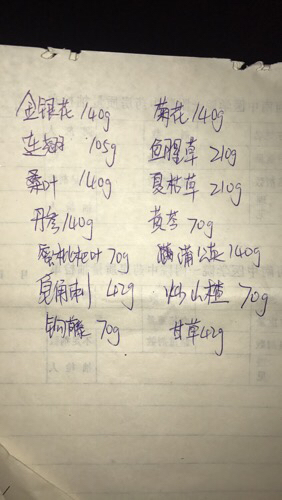 金银花 140g 菊花 140g
连翘 105g 鱼腥草 210g
桑叶 140g 夏枯草 210g
丹参 140g 黄芩 70g
蜜枇杷叶 70g 蒲公英 140g
皂角刺 42g 炒山楂 70g
钩藤 70g 甘草 42g